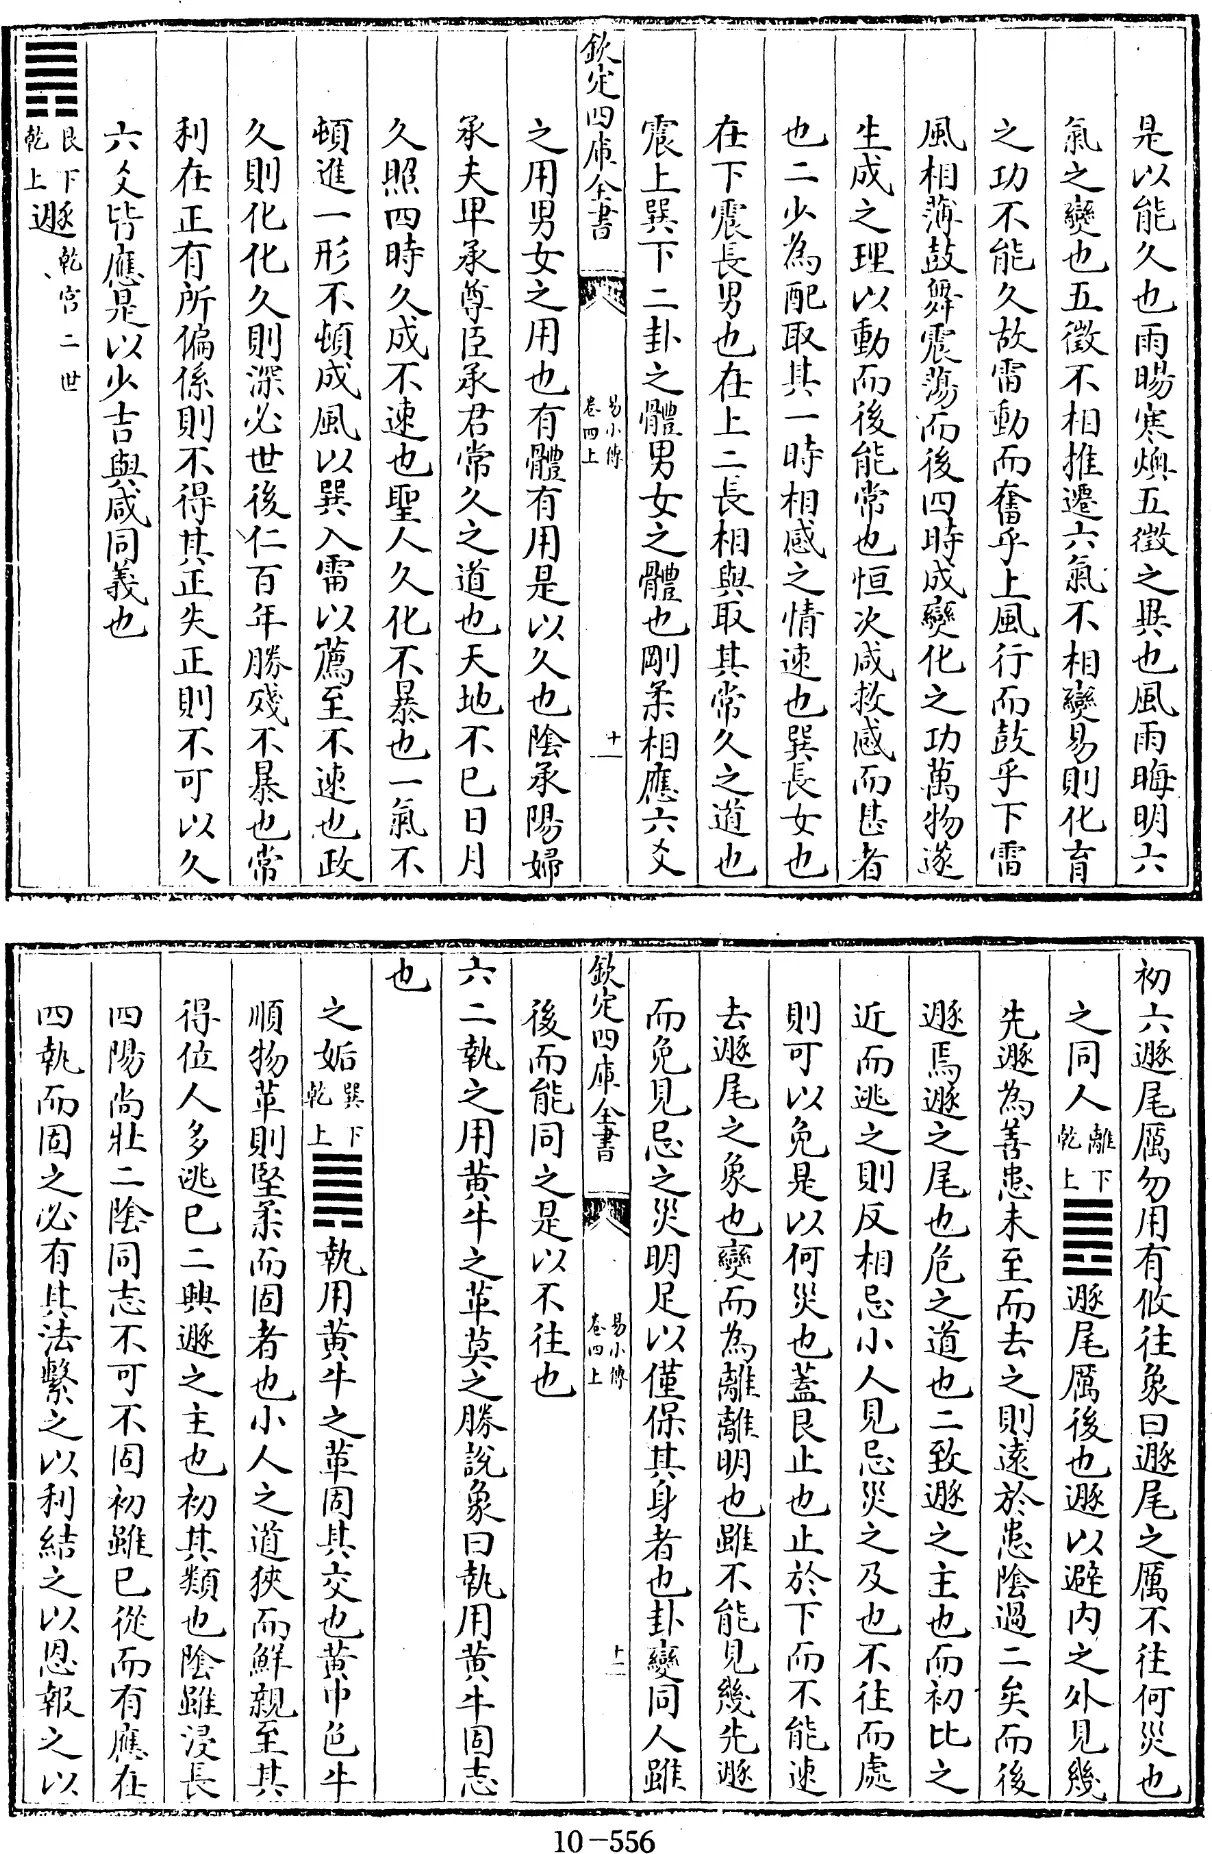 是以能久也雨暘寒燠五徵之異也風雨晦明六
氣之變也五徵不相推遷六氣不相變易則化育
之功不能久故雷動而奮乎上風行而鼓乎下雷
風相薄鼓舞震蕩而後四時成變化之功萬物遂
生成之理以動而後能常也恒次咸救感而甚者
也二少為配取其一時相感之情速也巽長女也
在下震長男也在上二長相與取其常久之道也
震上巽下二卦之體男女之體也剛柔相應六爻
欽定四庫全書
易小傳
卷四上
十一
之用男女之用也有體有用是以久也陰承陽婦
承夫卑承尊臣承君常久之道也天地不已日月
久照四時久成不速也聖人久化不暴也一氣不
頓進一形不頓成風以巽入雷以薦至不速也政
久則化化久則深必世後仁百年勝殘不暴也常
利在正有所偏係則不得其正失正則不可以久
六爻皆應是以少吉與咸同義也
艮下
乾上
遯
乾宮二世
初六遯尾厲勿用有攸往象曰遯尾之厲不往何災也
之同人
離下
乾上
遯尾厲後也遯以避內之外見幾
先遯為善患未至而去之則遠於患陰過二矣而後
遯焉遯之尾也危之道也二致遯之主也而初比之
近而逃之則反相忌小人見忌災之及也不往而處
則可以免是以何災也蓋艮止也止於下而不能速
去遯尾之象也變而為離離明也雖不能見幾先遯
而免見忌之災明足以僅保其身者也卦變同人雖
欽定四庫全書
易小傳
卷四上
十二
後而能同之是以不往也
六二執之用黄牛之革莫之勝說象曰執用黄牛固志
也
之姤
巽下
乾上
執用黄牛之革固其交也黄中色牛
順物革則堅柔而固者也小人之道狹而鮮親至其
得位人多逃已二興遯之主也初其類也陰雖浸長
四陽尚壯二陰同志不可不固初雖已從而有應在
四執而固之必有其法繫之以利結之以恩報之以
10-556